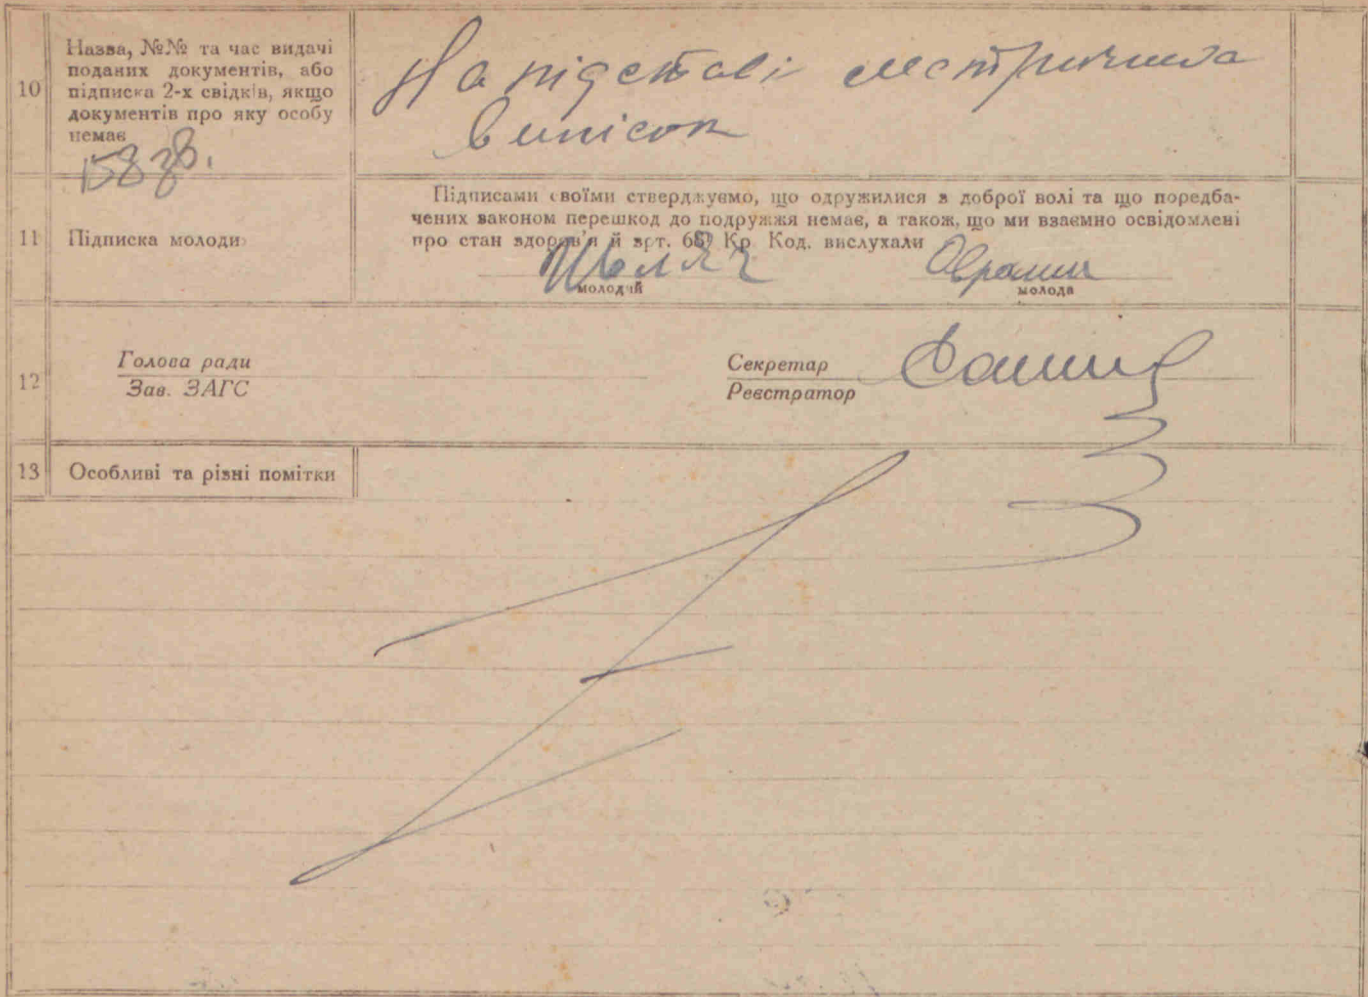 10
Назва, №№ та час видачі
поданих документів, або
підписка 2-х свідків, якщо
документів про яку особу
немає
На підставі метричних
виписок
11
Підписка молоди
Підписами своїми стверджуємо, що одружилися з доброї волі та що поредба-
чених законом перешкод до подружжя немає, а також, що ми взаємно освідомлені
про стан здоров'я й арт. Кр. Код. вислухали
молодий
молода
12
Голова ради
Зав. ЗАГС
Секретар
Реєстратор
13
Особливі та різні помітки